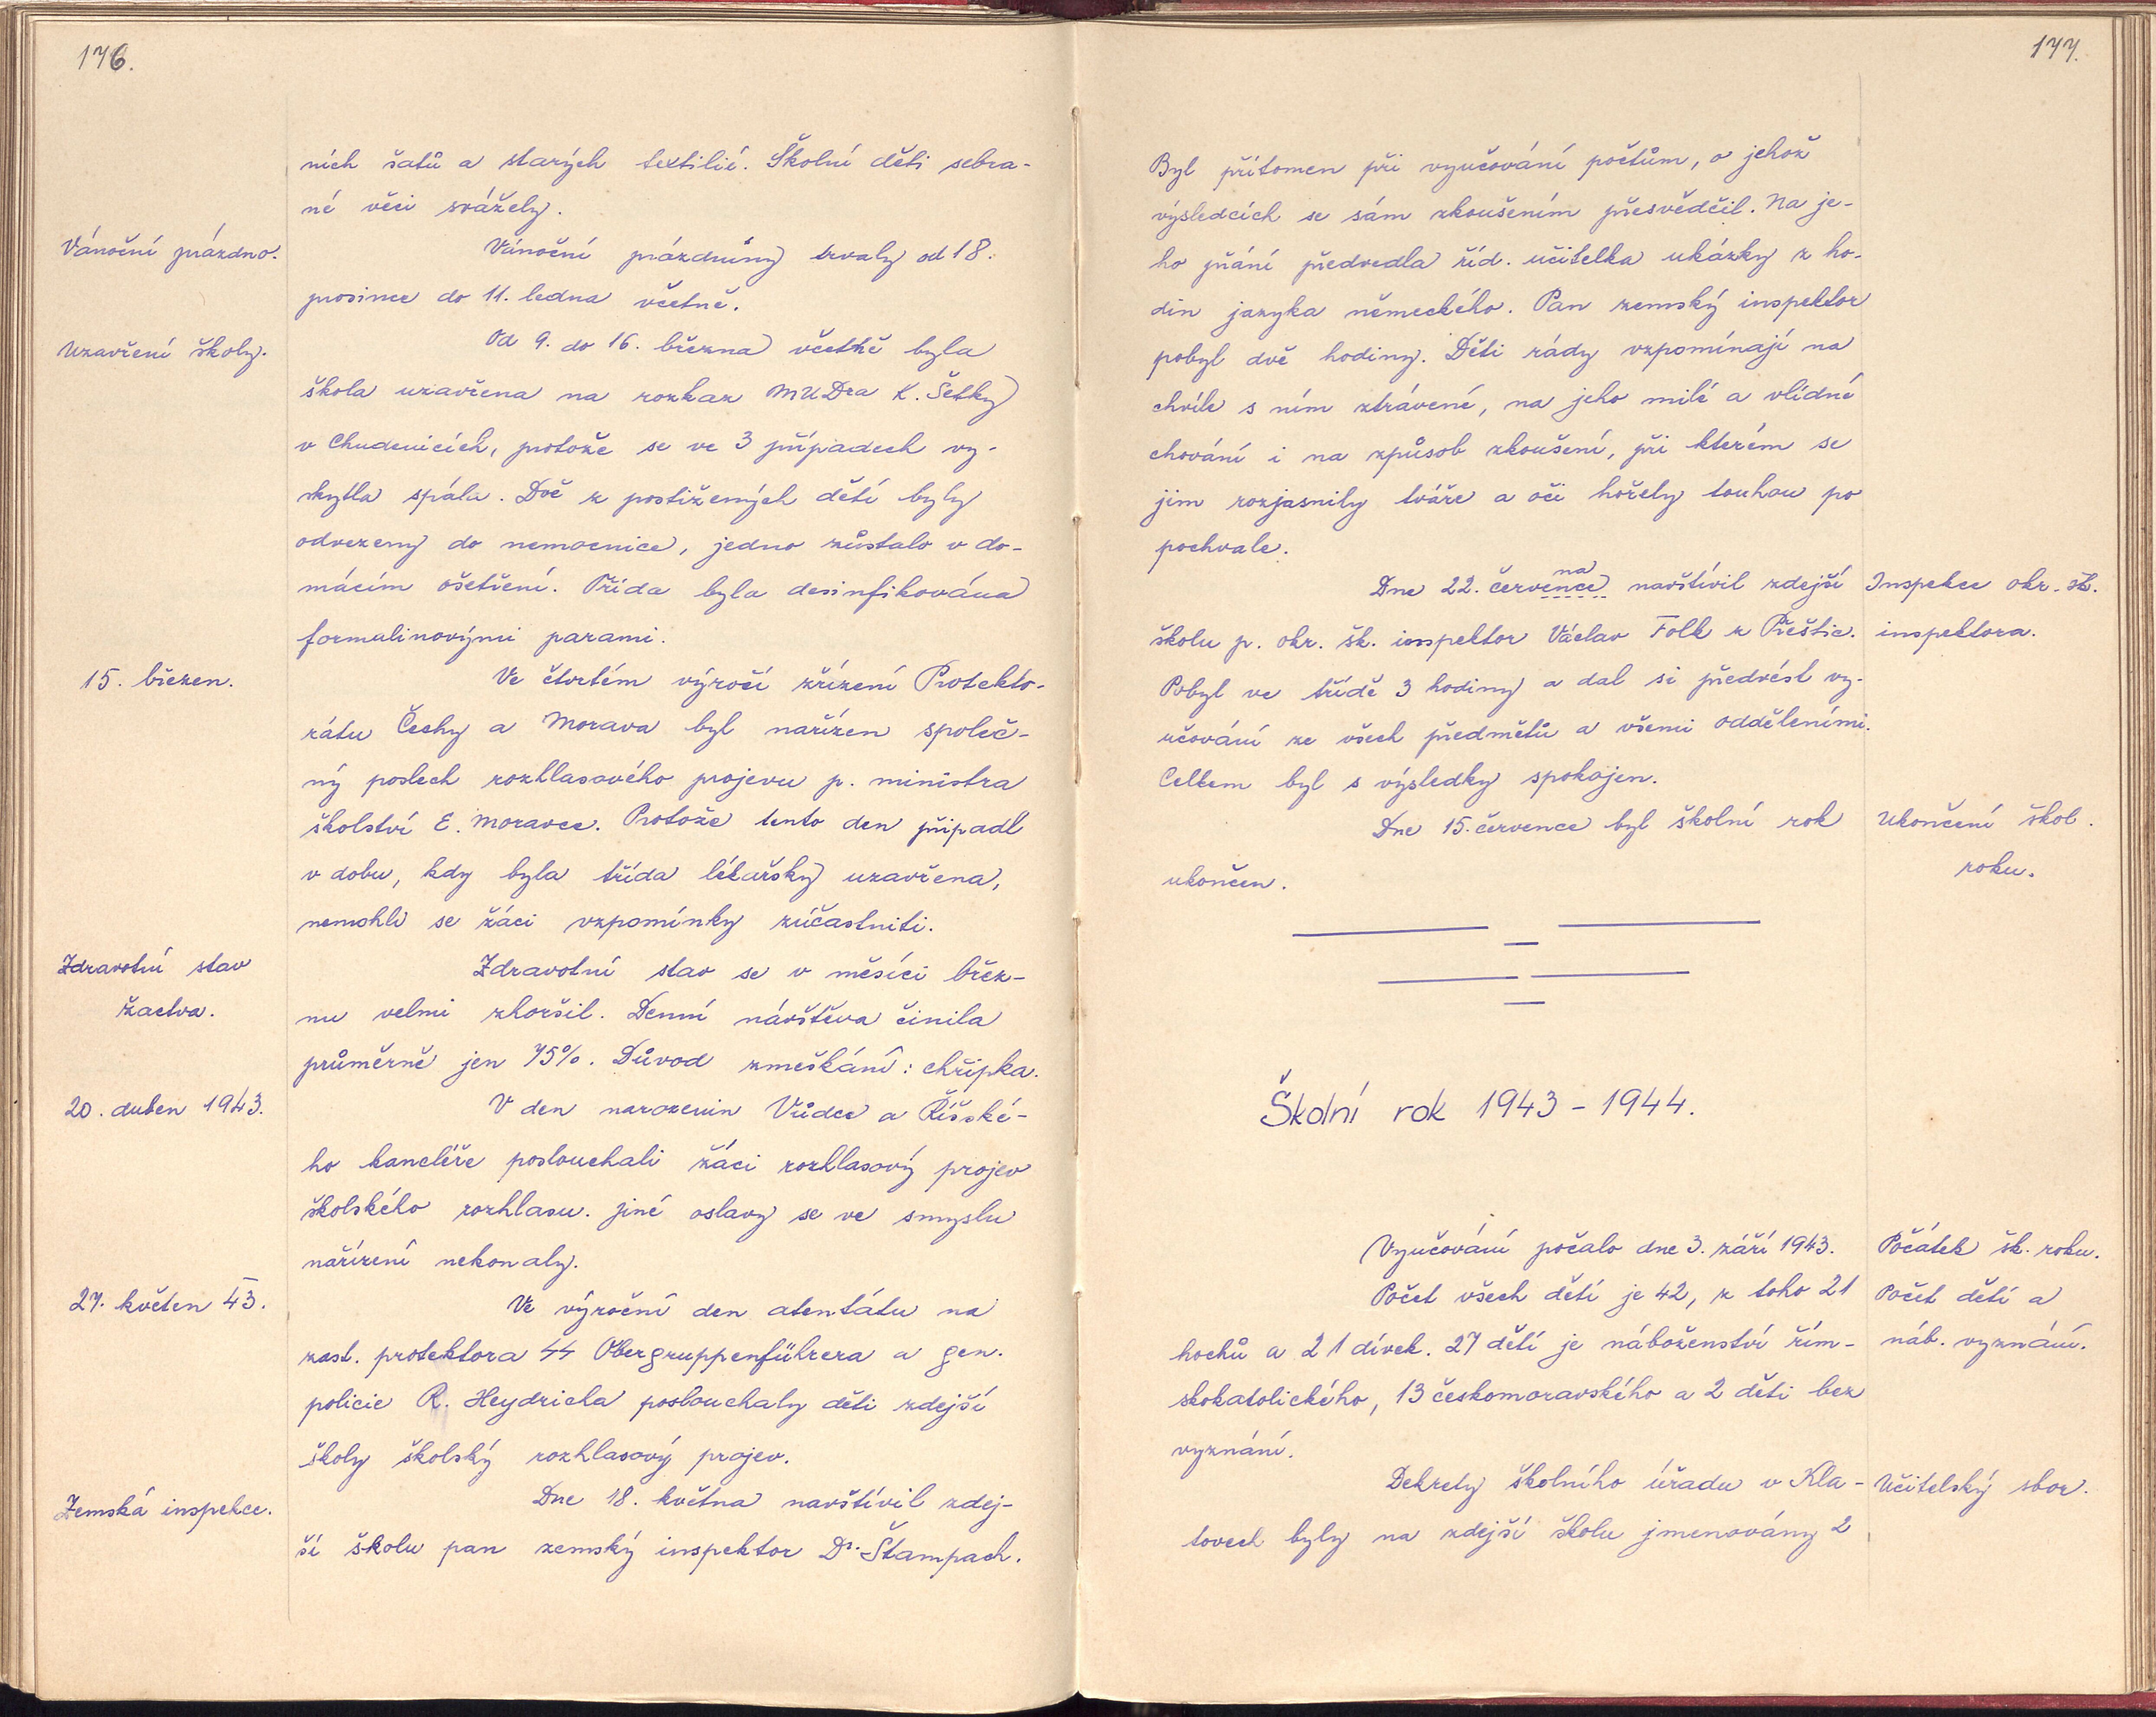 176.
ních šatů a starých textilií. Školní děti sebra-
né věci svážely.
Vánoční prázdno.
Vánoční prázdniny trvaly od 18.
prosince do 11. ledna včetně.
Uzavření školy.
Od 9. do 16. března včetně byla
škola uzavřena na rozkaz MUDra K. Šetky
v Chudenicích, protože se ve 3 případech vy-
skytla spála. Dvě z postižených dětí byly
odvezeny do nemocnice, jedno zůstalo v do-
mácím ošetření. Třída byla desinfikována
formalinovými parami.
15. březen.
Ve čtvrtém výročí zřízení Protekto-
rátu Čechy a Morava byl nařízen společ-
ný poslech rozhlasového projevu p. ministra
školství E. Moravce. Protože tento den připadl
v dobu, kdy byla třída lékařsky uzavřena,
nemohli se žáci vzpomínky zúčastniti.
Zdravotní stav
žactva.
Zdravotní stav se v měsíci břez-
nu velmi zhoršil. Denní návštěva činila
průměrně jen 75%. Důvod zmeškání: chřipka.
20. duben 1943.
V den narozenin Vůdce a Říšské-
ho kancléře poslouchali žáci rozhlasový projev
školského rozhlasu. Jiné oslavy se ve smyslu
nařízení nekonaly.
27. květen 43.
Ve výroční den atentátu na
zast. protektora SS Obergruppenführera a gen.
policie R. Heydricha poslouchaly děti zdejší
školy školský rozhlasový projev.
Zemská inspekce.
Dne 18. května navštívil zdej-
ší školu pan zemský inspektor Dr. Štampach.
177.
Byl přítomen při vyučování počtům, o jehož
výsledcích se sám zkoušením přesvědčil. Na je-
ho přání předvedla říd. učitelka ukázky z ho-
din jazyka německého. Pan zemský inspektor
pobyl dvě hodiny. Děti rády vzpomínají na
chvíle s ním ztrávené, na jeho milé a vlídné
chování i na způsob zkoušení, při kterém se
jim rozjasnily tváře a oči hořely touhou po
pochvale.
na
Dne 22. července navštívil zdejší
Inspekce okr. šk.
školu p. okr. šk. inspektor Václav Folk z Přeštic.
inspektora.
Pobyl ve třídě 3 hodiny a dal si předvést vy-
učování ze všech předmětů a všemi odděleními.
Celkem byl s výsledky spokojen.
Dne 15. července byl školní rok
Ukončení škol.
ukončen.
roku.
Školní rok 1943 - 1944.
Vyučování počalo dne 3. září 1943.
Počátek šk. roku.
Počet všech dětí je 42, z toho 21
Počet dětí a
hochů a 21 dívek. 27 dětí je náboženství řím-
náb. vyznání.
skokatolického, 13 českomoravského a 2 děti bez
vyznání.
Dekrety školního úřadu v Kla-
Učitelský sbor.
tovech byly na zdejší školu jmenovány 2